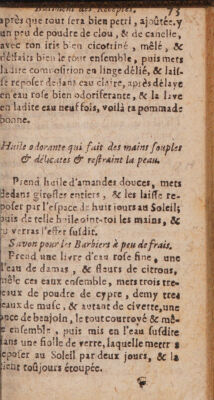 Bâtiment des Receptes. 73
après que tout sera bien petri, ajoûtée.y
un peu de poudre de clou, & de canelle,
avec ton iris bien cicotriné, mêlé, &
défaits bien le tout ensemble, puis mets
ta dite composition en linge délié, & lais-
se reposer dedans eau claire, après délaye
en eau rose bien odoriferante, & la lave
en ladite eau neuf fois, voilà ta pommade
bonne.
Huile odorante qui fait des mains souples
& délicates & restraint la peau.
Prend huile d'amandes douces, mets
dedans girofles entiers, & les laisse re-
poser par l'espace de huit jours au Soleil,
puis de telle huile oint-toi les mains, &
tu verras l'effet susdit.
Savon pour les Barbiers à peu de frais.
Prend une livre d'eau rose fine, une
d'eau de damas, & fleurs de citrons,
mêle ces eaux ensemble, mets trois tre-
zeaux de poudre de cypre, demy tre-
zeaux de musc, & autant de civette, une
once de benjoin, le tout courroyé & mê-
lé ensemble, puis mis en l'eau susdite
dans une fiolle de verre, laquelle mettr s
reposer au Soleil par deux jours, & la
tient toûjours étoupée.